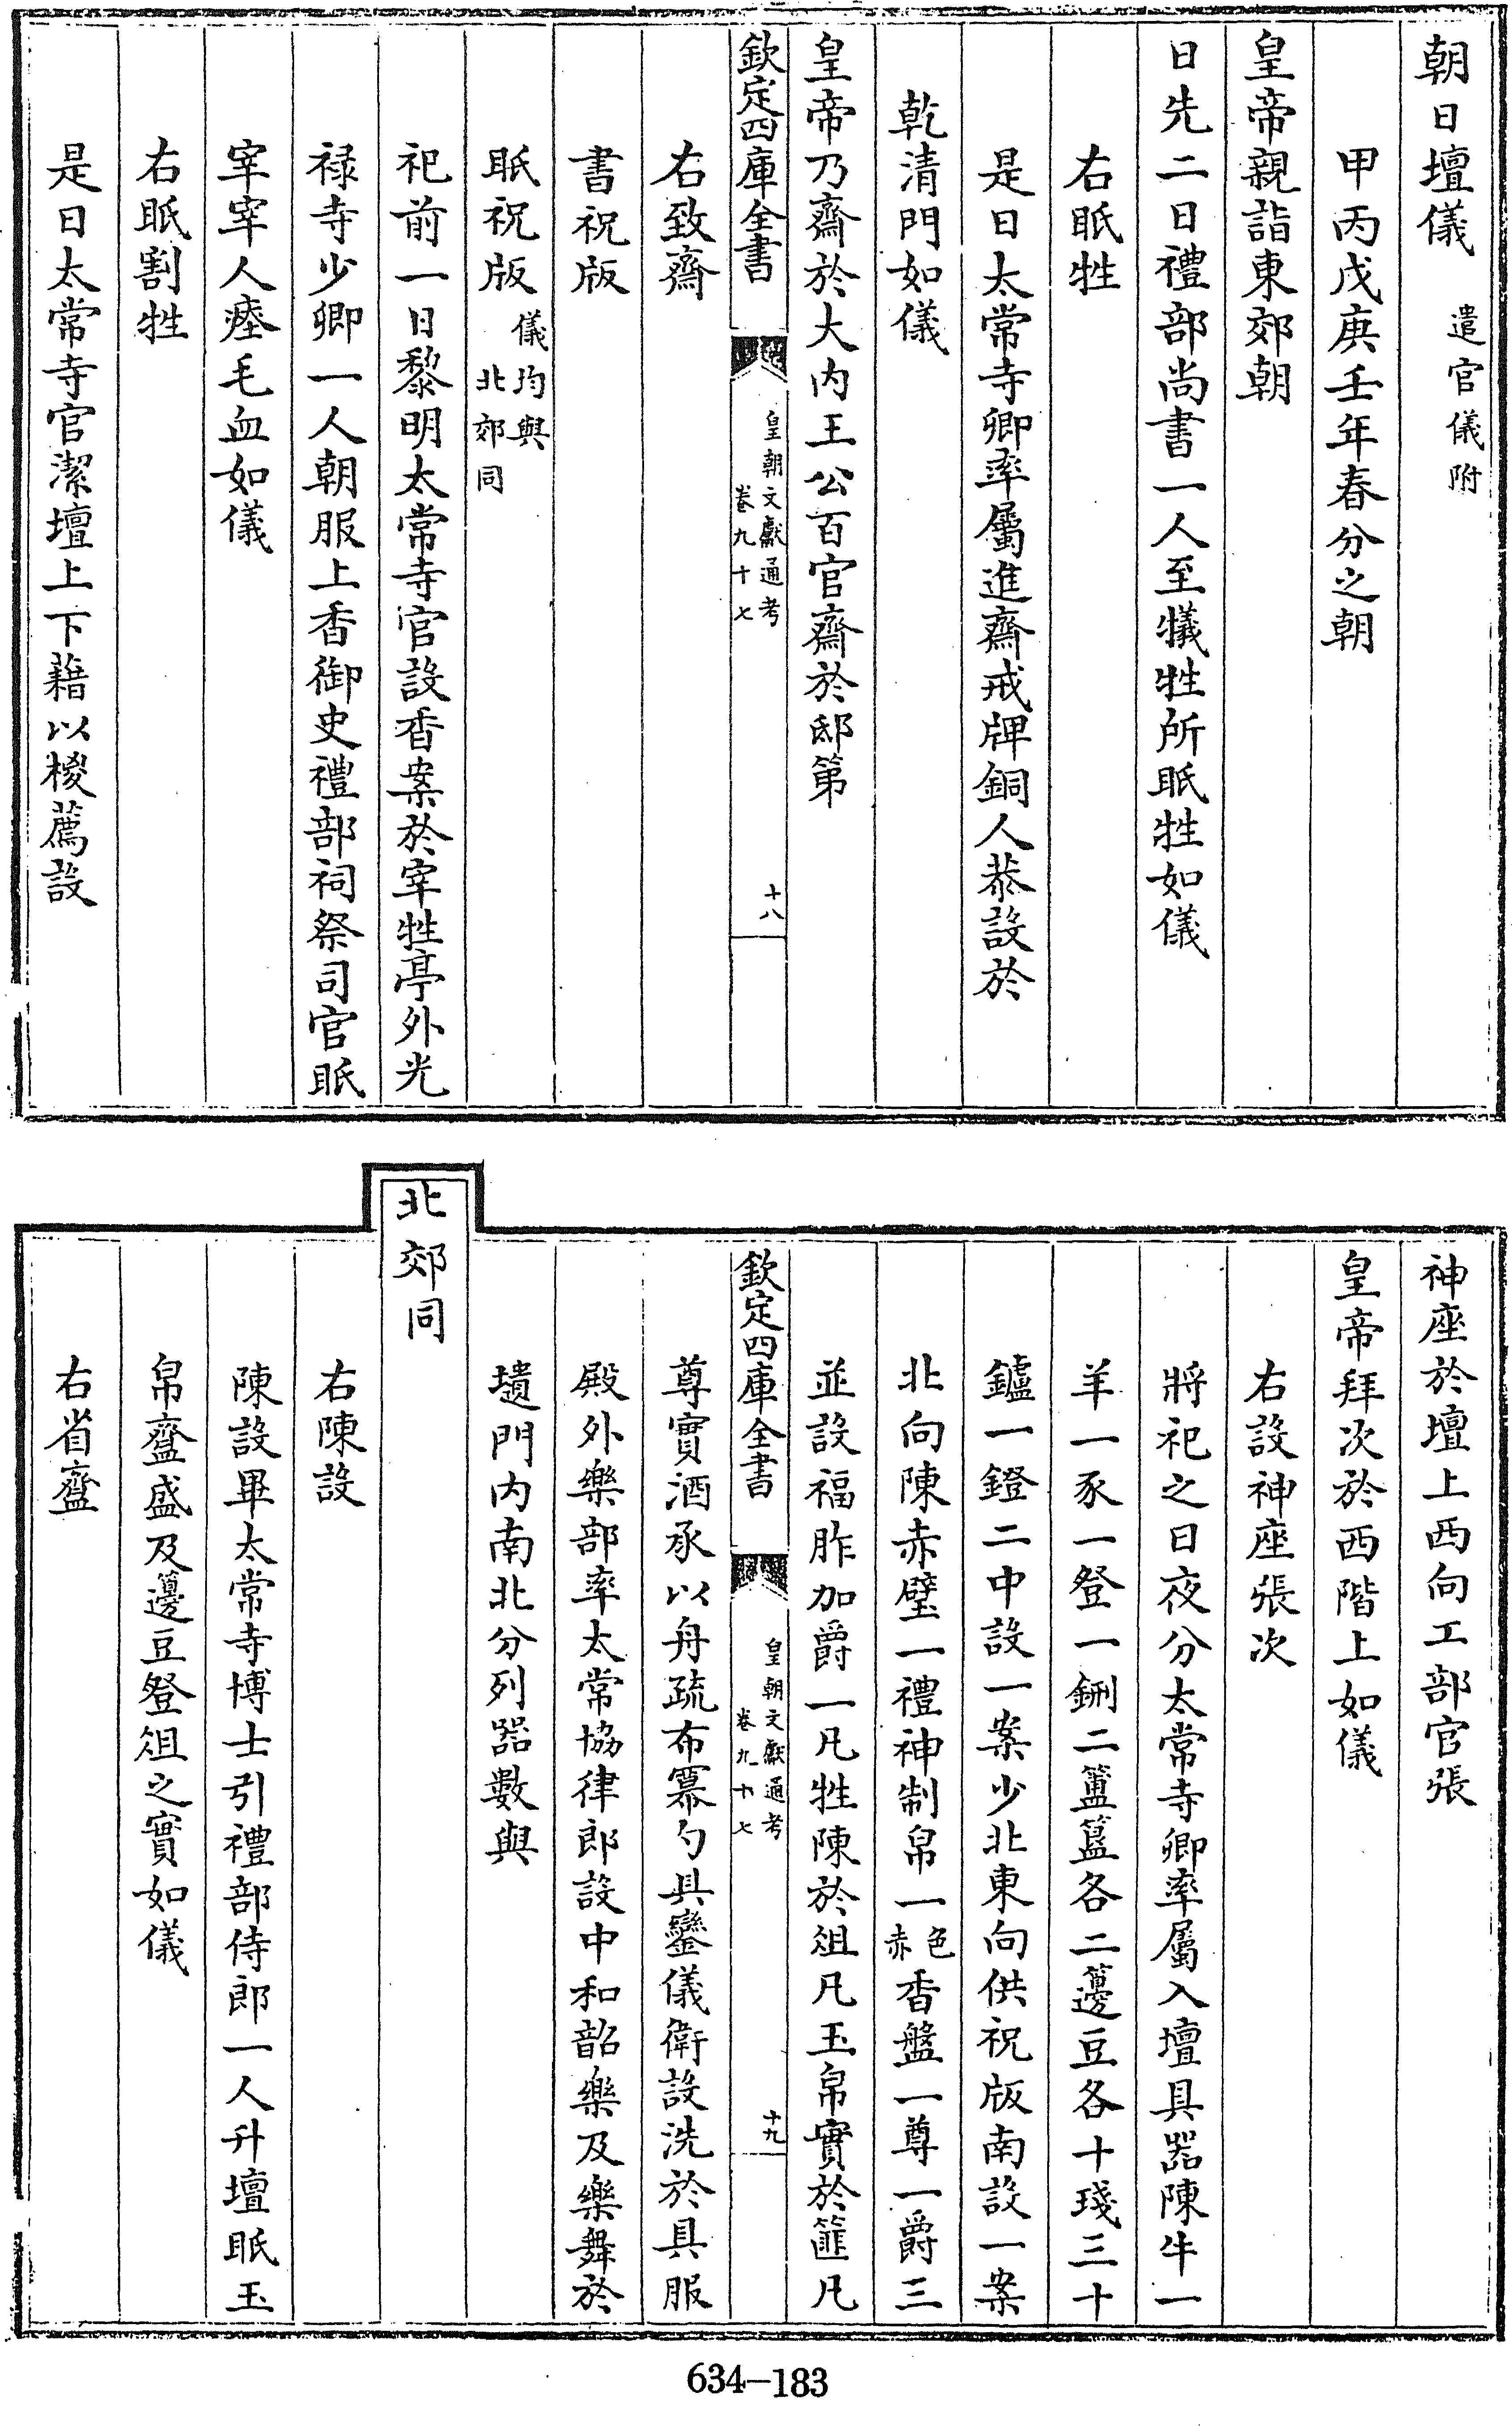 朝日壇儀 遣官儀附
甲丙戊庚壬年春分之朝
皇帝親詣東郊朝
日先二日禮部尚書一人至犠牲所眡牲如儀
右眡牲
是日太常寺卿率屬進齋戒牌銅人恭設於
乾清門如儀
皇帝乃齋於大内王公百官齋於邸第
欽定四庫全書 皇朝文獻通考 卷九十七 十八
右致齋
書祝版
眡祝版 儀均與北郊同
祀前一日黎明太常寺官設香案於宰牲亭外光
禄寺少卿一人朝服上香御史禮部祠祭司官眡
宰宰人瘞毛血如儀
右眡割牲
是日太常寺官潔壇上下藉以椶薦設
神座於壇上西向工部官張
皇帝拜次於西階上如儀
右設神座張次
將祀之日夜分太常寺卿率屬入壇具器陳牛一
羊一豕一登一鉶二簠簋各二籩豆各十琖三十
鑪一鐙二中設一案少北東向供祝版南設一案
北向陳赤璧一禮神制帛一色赤香盤一尊一爵三
並設福胙加爵一凡牲陳於俎凡玉帛實於篚凡
欽定四庫全書 皇朝文獻通考 卷九十七 十九
尊實酒承以舟疏布冪勺具鑾儀衛設洗於具服
殿外樂部率太常協律郎設中和韶樂及樂舞於
壝門内南北分列器數與
北郊同
右陳設
陳設畢太常寺博士引禮部侍郎一人升壇眡玉
帛齍盛及籩豆登俎之實如儀
右省齍
634-183